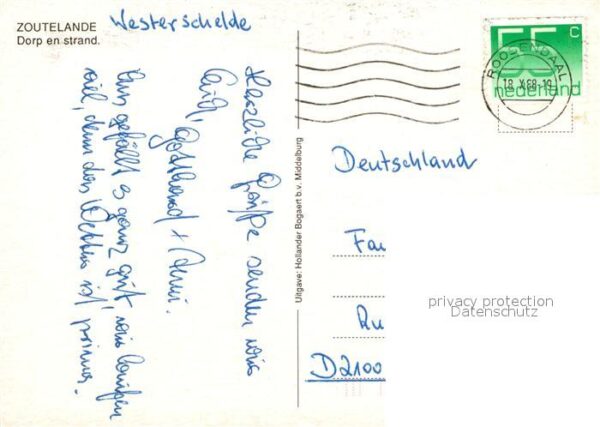 ZOUTELANDE
Dorp en strand.
Westerschelde
Herzliche Grüße senden wir
Euch, Gotthard +
Uns gefällt's ganz gut, wir laufen
viel, denn das Wetter ist prima.
Uitgave: Hollander Bogaert b.v. Middelburg
ROOSENDAAL
18.X.88-19
55 c
nederland
Deutschland
Fa
Ru
D2100
privacy protection
Datenschutz